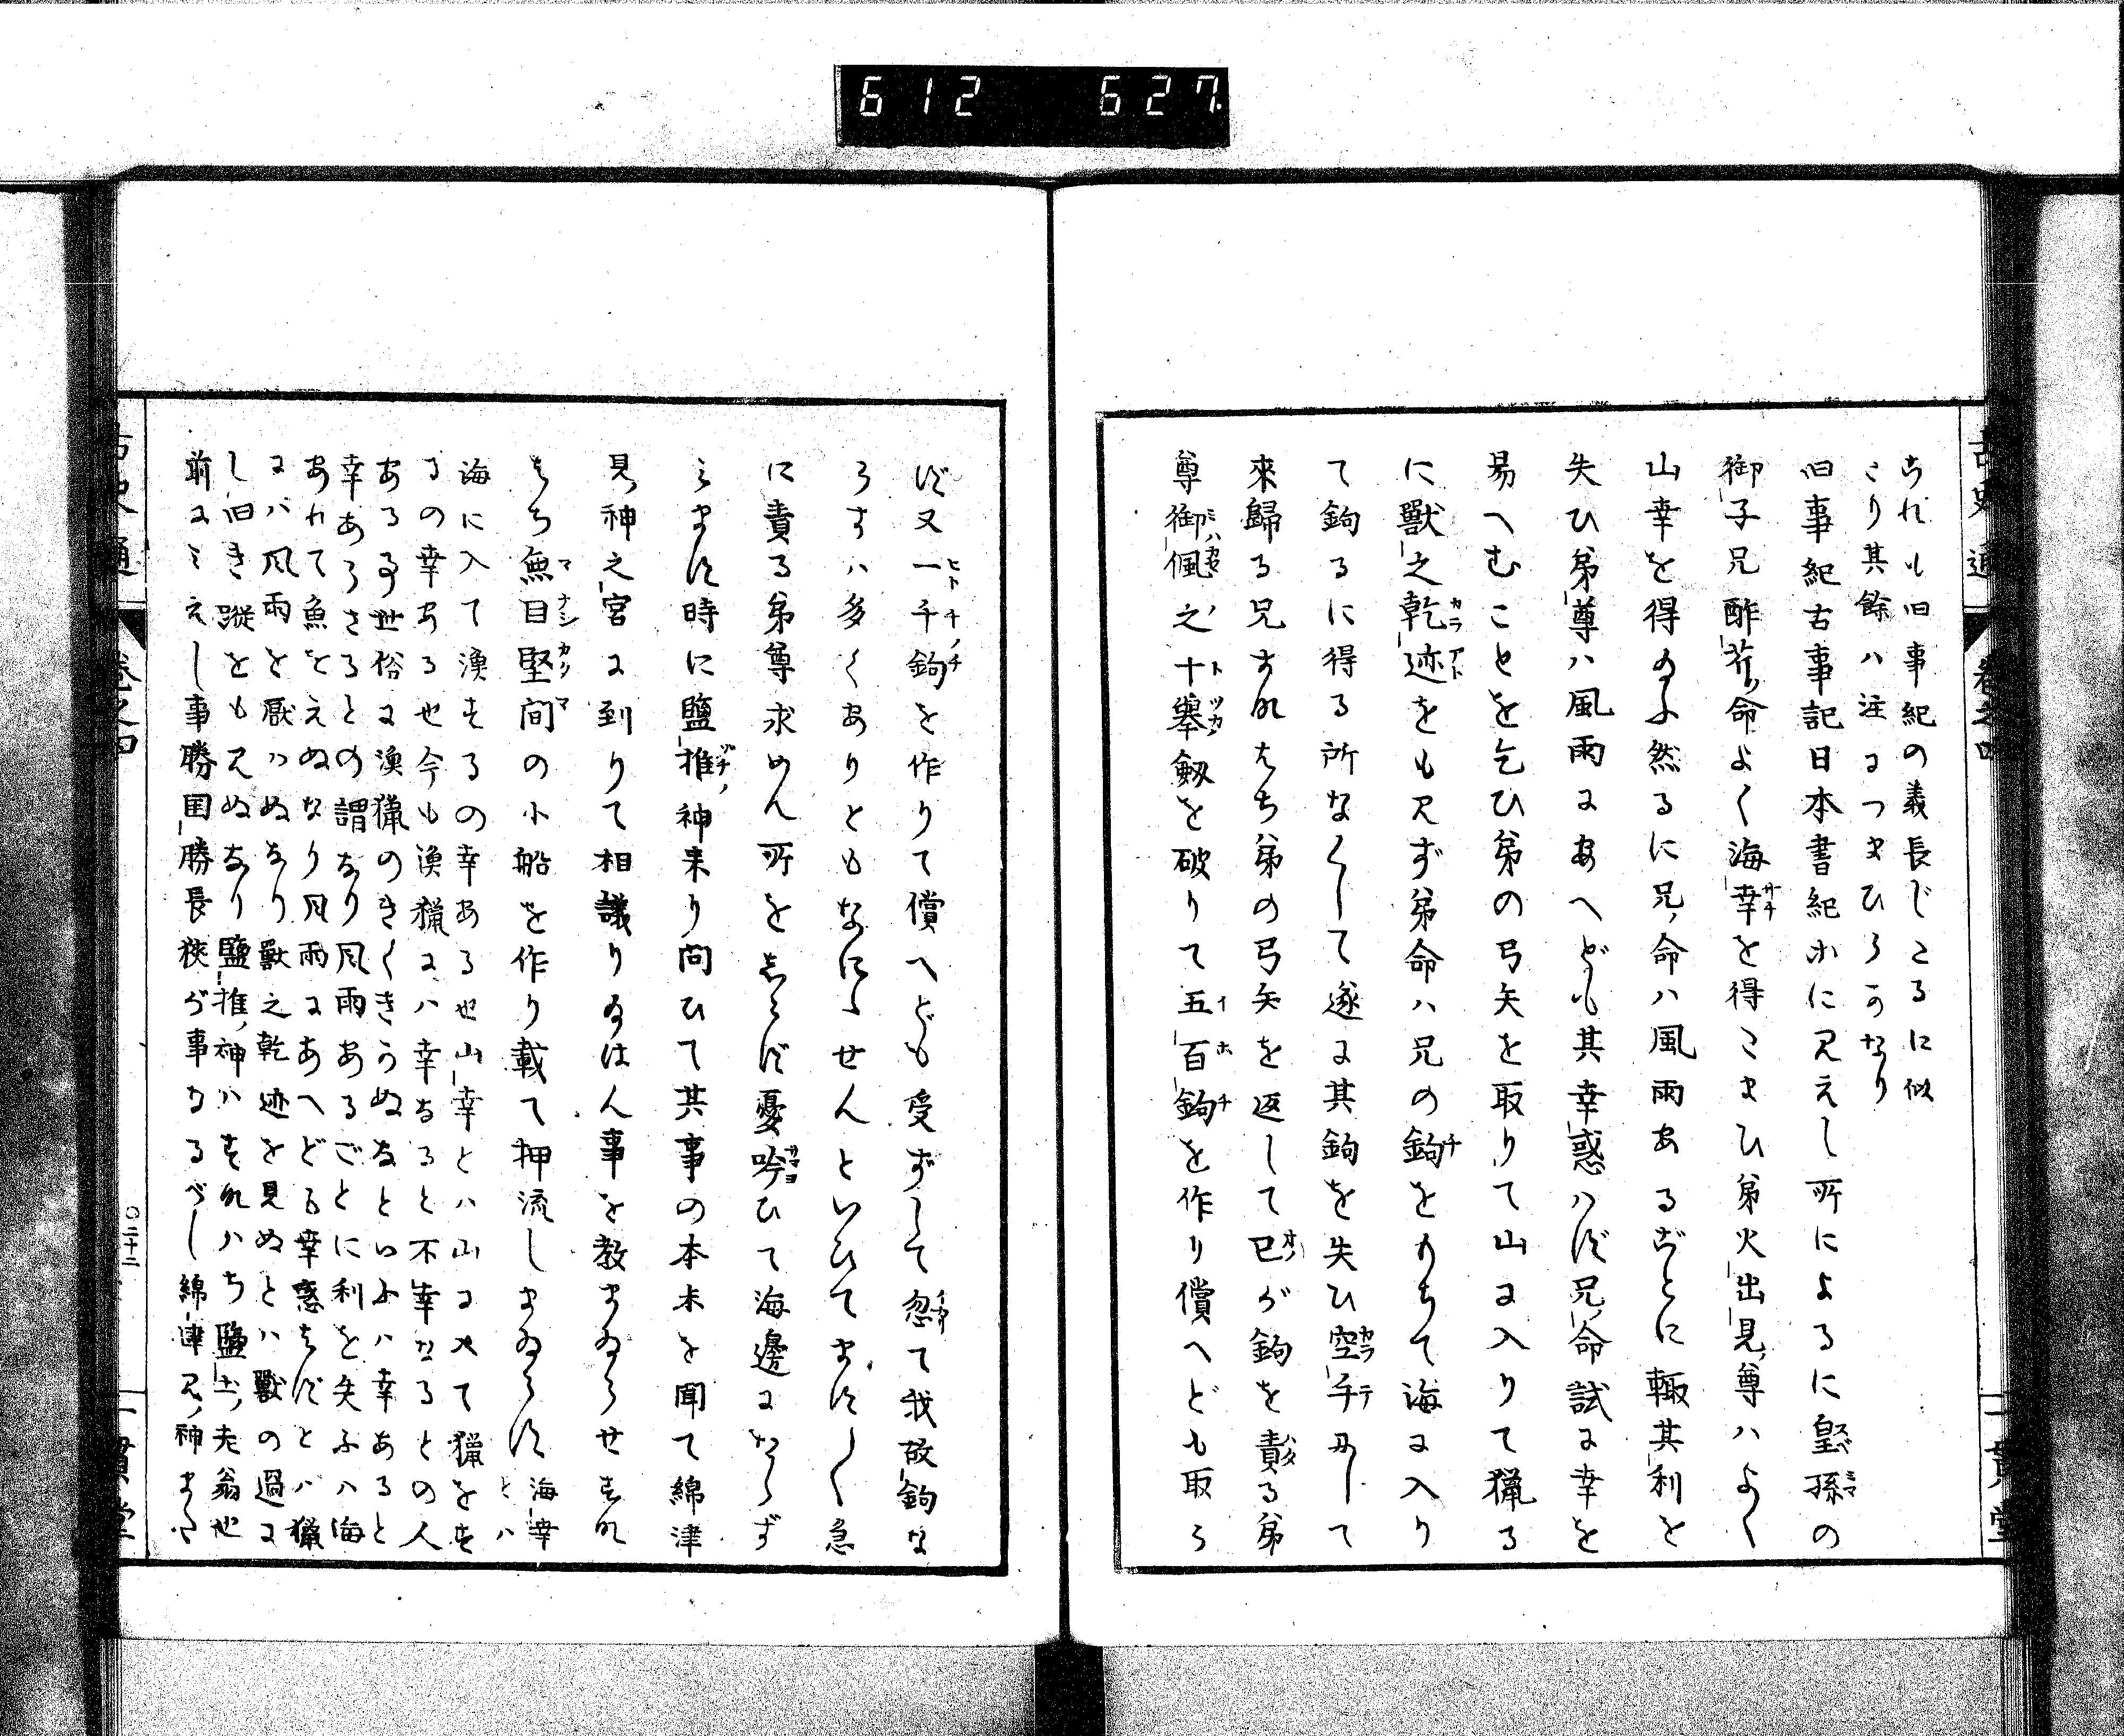 612 627
古史通 卷之四 一貫堂
これも旧事紀の義長じたるに似
たり其餘ハ注につまひらかなり
旧事紀古事記日本書紀ホに見えし所によるに皇孫の
御子兄酢芹命よく海幸を得たまひ弟火出見尊ハよく
山幸を得給ふ然るに兄命ハ風雨あるごとに輙其利を
失ひ弟尊ハ風雨にあへども其幸惑ハず兄命試に幸を
易へむことを乞ひ弟の弓矢を取りて山に入りて獵る
に獸之乾迹をも見ず弟命ハ兄の鉤をもちて海に入り
て鉤るに得る所なくして遂に其鉤を失ひ空手にして
來歸る兄すなはち弟の弓矢を返して已が鉤を責る弟
尊御佩之十擧劔を破りて五百鉤を作り償へども取ら
ず又一千鉤を作りて償へども受ずして忿て我故鉤な
らずハ多くありともなにゝせんといひてます〳〵急
に責る弟尊求めん所をしらず憂吟ひて海邊にならず
みます時に鹽推神来り問ひて其事の本末を聞て綿津
見神之宮に到りて相議り給はん事を教まゐらせすな
はち無目堅間の小船を作り載て押流しまゐらす
海幸とハ
海に入て漁するの幸ある也山幸とハ山にして獵をす
るの幸ある也今も漁獵にハ幸なると不幸なるとの人
ある事世俗に漁獵のきくきかぬなといふハ幸あると
幸あらさるとの謂なり風雨あるごとに利を失ふハ海
あれて魚をえぬなり風雨にあへども幸惑はずとハ獵
にハ風雨を厭ハぬなり獸之乾迹を見ぬとハ獸の過に
し旧き蹤をも見ぬなり鹽推神ハすなハち鹽土老翁也
前にみえし事勝国勝長狹が事なるべし綿津見神また
古史通 卷之四 〇二十二 一貫堂